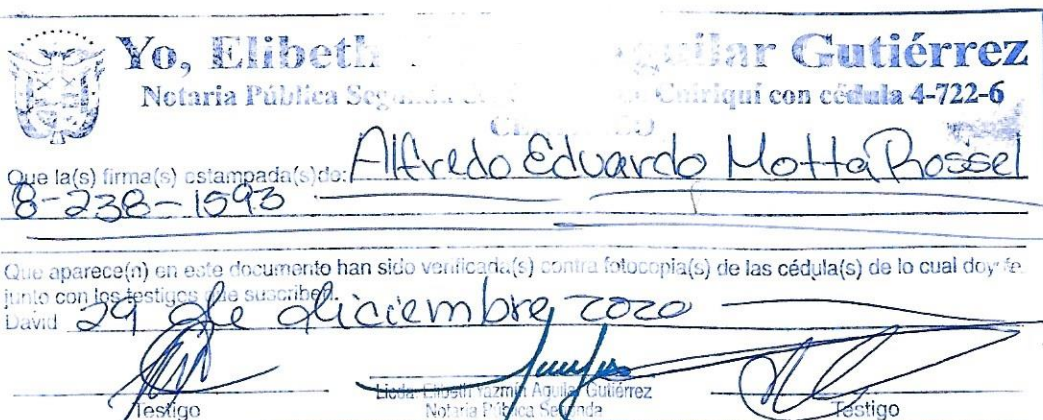 Yo, Elibeth Aguilar Gutiérrez
Notaria Pública Segunda Chiriquí con cédula 4-722-6
Que la(s) firma(s) estampada(s) de: Alfredo Eduardo Motta Rossel
8-238-1593
Que aparece(n) en este documento han sido verificada(s) contra fotocopia(s) de las cédula(s) de lo cual doy fe
junto con los testigos que suscriben.
David 29 de diciembre 2020
Licda. Elibeth Yazmín Aguilar Gutiérrez
Testigo Notaria Pública Segunda Testigo